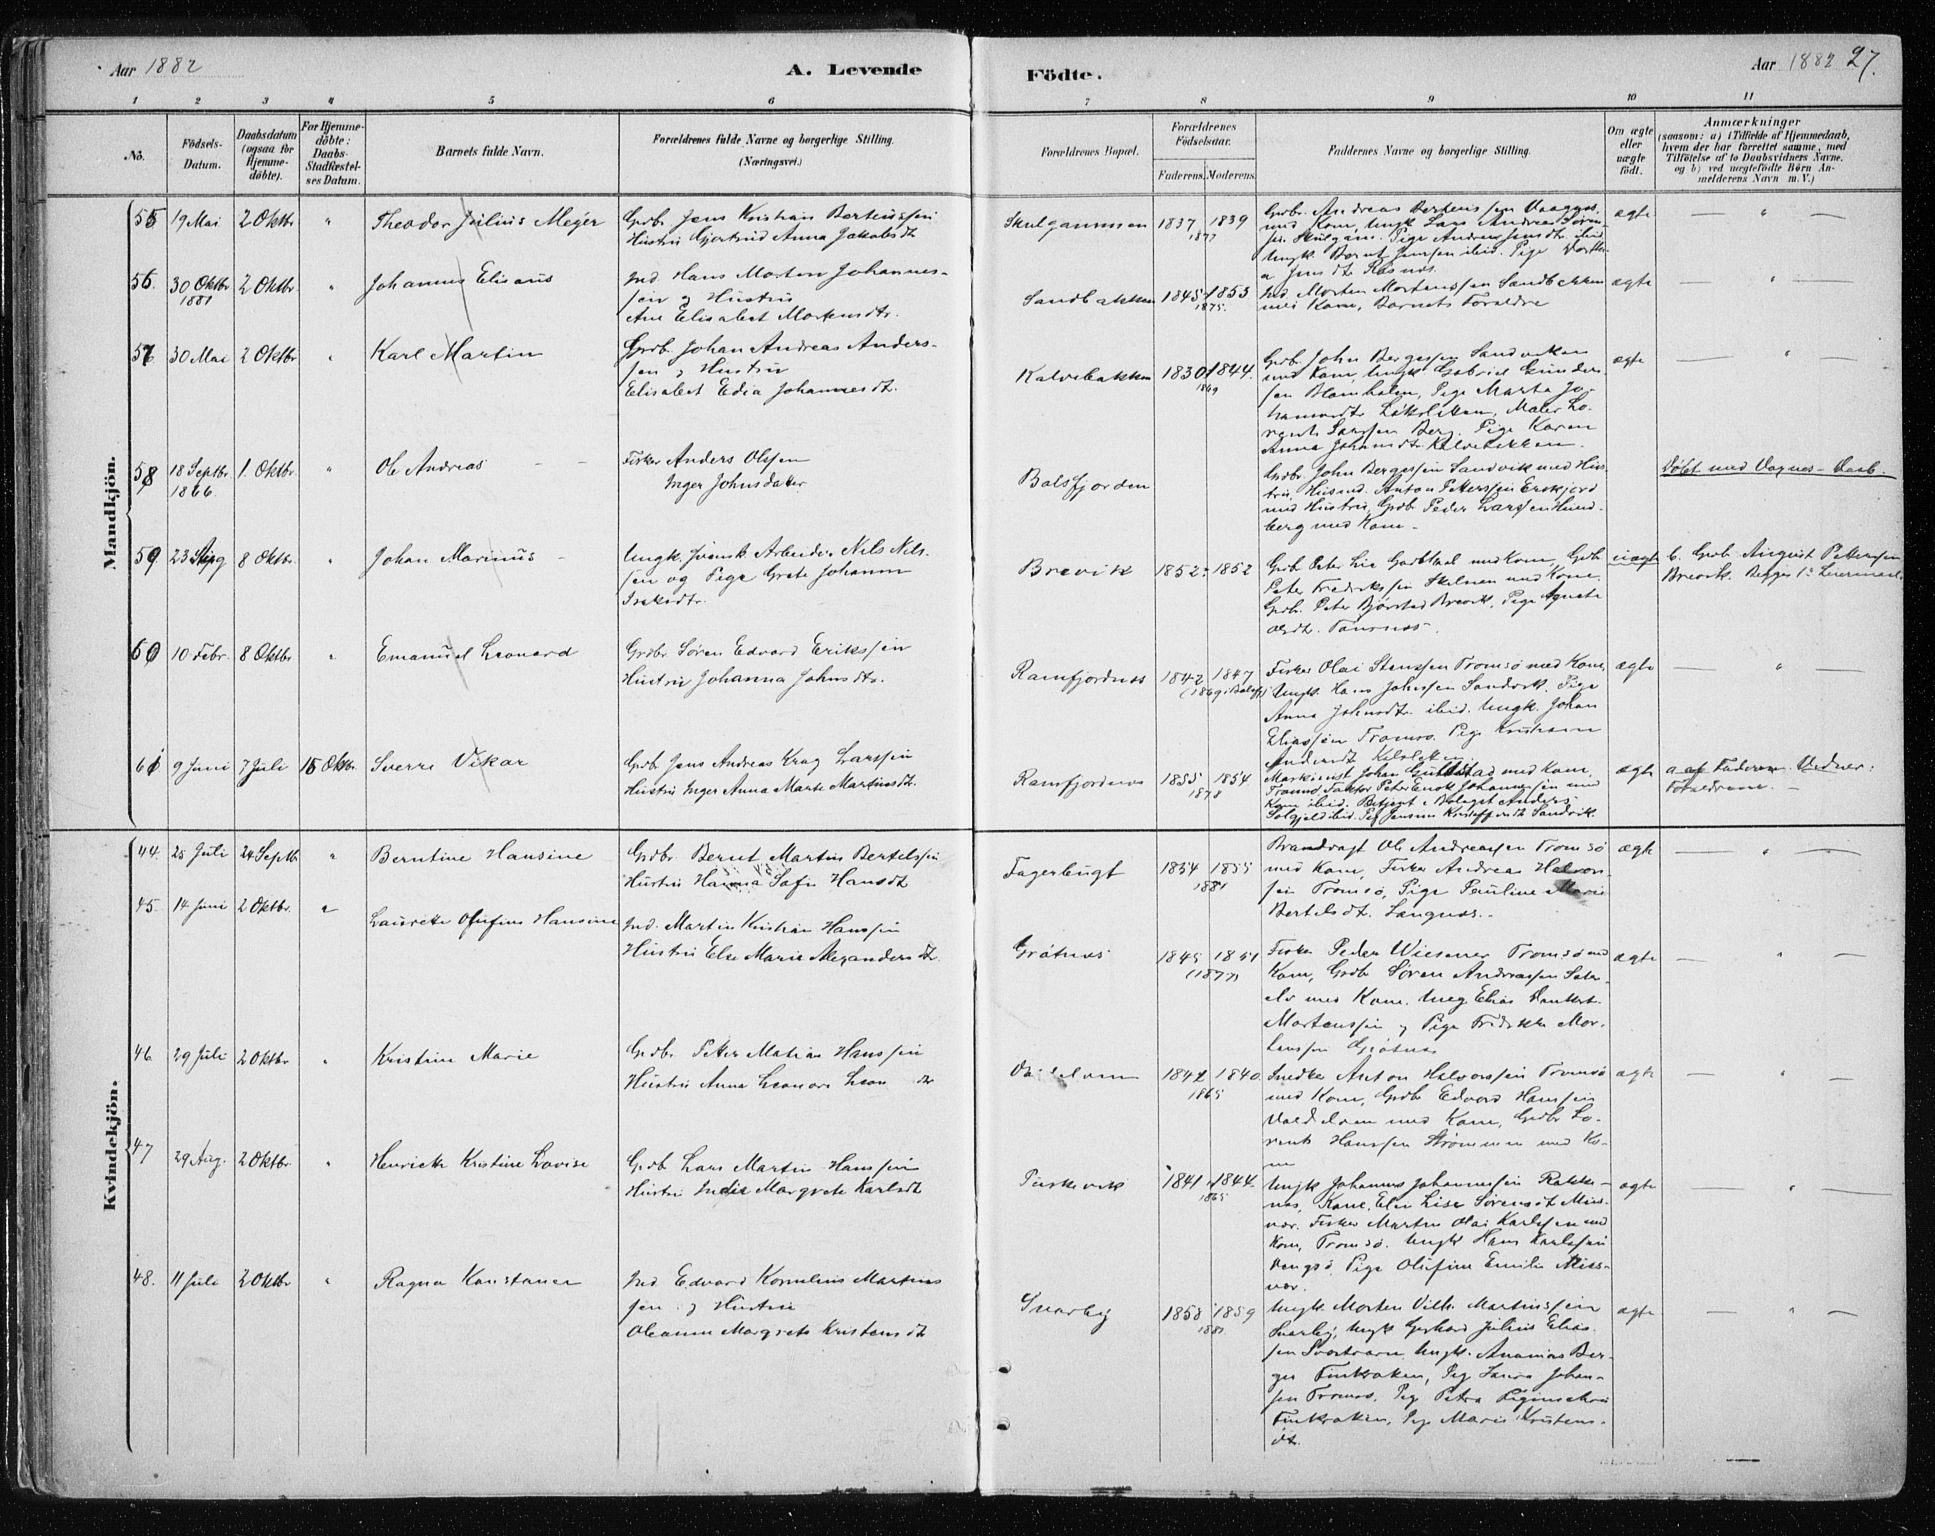 Aar 1882
A. Levende
Födte.
Aar 1882 27.
1 2 3 4 5 6 7 8 9 10 11
No.
Födsels-
Datum.
Daabsdatum
(ogsaa for
Hjemme-
döbte).
For Hjemme-
döbte:
Daabs-
Stadfæstel-
ses Datum.
Barnets fulde Navn.
Forældrenes fulde Navne og borgerlige Stilling.
(Næringsvei.)
Forældrenes Bopæl.
Forældrenes
Födselsaar.
Faderens. Moderens.
Faddernes Navne og borgerlige Stilling.
Om ægte
eller
uægte
födt.
Anmærkninger
(saasom: a) i Tilfælde af Hjemmedaab,
hvem der har forrettet samme, med
Tilföielse af to Daabsvidners Navne,
og b) ved uægtefödte Börn An-
melderens Navn m. V.)
Mandkjön.
55 19 Mai 2 Oktbr " Theodor Julius Meyer
Grdb. Jens Kristian Berteussen
Hustru Gjertrud Anna Jakobsdt
Skulgammen 1837 1839
1877
Gdbr. Andreas Bertens sen Vaagnes,
med Kone, Ungk. Lars Andreas Søren-
sen Skulgam. Pige Andrea Jensdt ibid
Ungk. Bernt Jenssen ibid. Pige
a Jensdt
ægte — " —
56. 30 Oktbr 2 Oktbr " Johannes Elisæus
1881
Ind. Hans Morten Johannes-
sen og Hustru
Ane Elisabet Mortensdtr.
Sandbakken 1845 1853
1875.
Ind. Morten Mortenssen Sandbakken
med Kone, Barnets Forældre
ægte — " —
57 30 Mai 2 Oktbr " Karl Martin
Grdb. Johan Andreas Anders-
sen og Hustru
Elisabet Edea Johannesdt.
Kalvebakken 1830 1844.
1869
Gdb. John Bergessen Sandviken
med Kone, Ungk. Gabriel Gunders
sen Blomholm, Pige Marta Jo-
hannesdtr Løksletten, Maler Lo-
rents Larssen Berg. Pige Karen
Anna Johansdt. Kalvebakken.
ægte — " —
58 18 Septbr 1 Oktbr. " Ole Andreas
1866
Fisker Anders Olssen
Inger Johnsdatter
Balsfjorden
Gdbr. John Bergessen Sandvik med Hus-
tru, Husmd. Anton Pettersen
med Hustru, Grdb. Peder Larssen Hund-
berg med Kone -
Døbt med Voxnes- Daab.
59 23 Aug 8 Oktbr. " Johan Marinus
Ungk. svensk Arbeider Nils Nils-
sen og Pige Grete Johanna
Isaksdtr.
Brevik 1852 1852
Grdb Peter Lie med Kone, Gdb
Peter Fredriksen med Kone.
Gdb. Peter Bjørstad Brevik, Pige Agnete
uægte b. Grdb August Pettersen
Brevik. Begges 1ste Leiermaal.
60 10 Febr. 8 Oktbr " Emanuel Leonard
Grdbr Søren Edvard Erikssen
Hustru Johanna Johnsdtr.
Ramfjordnes 1842 1847
(1869 i Balsfj)
Fisker Olai Stenssen Tromsø med Kone,
Ungk. Hans Johnsen Sandvik. Pige
Anna Johnsdtr. ibid. Ungk. Johan
Eliassen Tromsø. Pige Kristiane
Andersdt
ægte — " —
61 9 Juni 7 Juli 15 Oktbr. Sverre Vikar
Gdb Jens Andreas Krag Larssen
Hustru Inger Anna Marte Martinsdt.
Ramfjordnes 1855 1854
1878
Maskinist Johan med Kone,
Tromsø Faktor Peter Enok Johannessen med
Kone ibid. Betjent i Bolaget Anders
ibid. Pige Jensine Sandvik
ægte a af Faderen Vidner:
Forældrene. -
Kvindekjön.
44. 25 Juli 24 Septb " Berntine Hansine
Grdbr Bernt Martin Bertelssen
Hustru Hanna Sofie Hansdt
Fagerbugt 1854 1855
1881
Brandvagt Ole Andreassen Tromsø
med Kone, Fisker Andreas Halvor-
sen Tromsø, Pige Pauline Marie
Bertelsdt. Langnes.
ægte — " —
45. 14 Juni 2 Oktbr. " Laurette Olufine Hansine
Ind. Martin Kristian Hanssen
Hustru Else Marie Alexandersdt.
Grøtnes 1845 1851
(1877)
Fisker Peder Wiesener Tromsø med
Kone, Gdb Søren Andreassen Sater-
elv med Kone. Ung. Elias Dankert
Martenssen og Pige Fredrikke Mor-
tenssen Grøtnes
ægte — " —
46 29 Juli 2 Oktbr " Kristine Marie
Grdbr Petter Matias Hanssen
Hustru Anna Leonore Leon dtr
1842 1840.
1865
Snedker Anton Halvorssen Tromsø
med Kone, Grdb Edvard Hanssen
med Kone, Grdbr Lo-
rents Hanssen Strømmen med Ko-
ne
ægte — " —
47 29 Aug. 2 Oktbr. " Henrikke Kristine Lovise
Grdb Lars Martin Hanssen
Hustru Margrete Karlsdt
1841 1844
1865
Ungk Johannes Johannessen Rakke-
nes, Kone Elen Lise Sørensdt Mus-
vær. Fisker Martin Olai Karlsen med
Kone, Tromsø. Ungk Hans Karlssen
Vengsø Pige Olufine Emilie Miss-
vær.
ægte — " —
48. 11 Juli 2 Oktbr " Ragna Konstance
Ind Edvard Kornelius Martins
sen og Hustru
Oleanna Margrete Kristensdt
Svarby 1858 1859
1881
Ungk. Morten Vilh. Martinssen
Svarby, Ungk Gerhard Julius Elias-
sen Svartvaren, Ungk. Ananias Ber-
ger Finkroken, Pige Laura Johan-
sen Tromsø, Pige Petra
Finkroken, Pige Marie Kristens-
dt.
ægte — " —